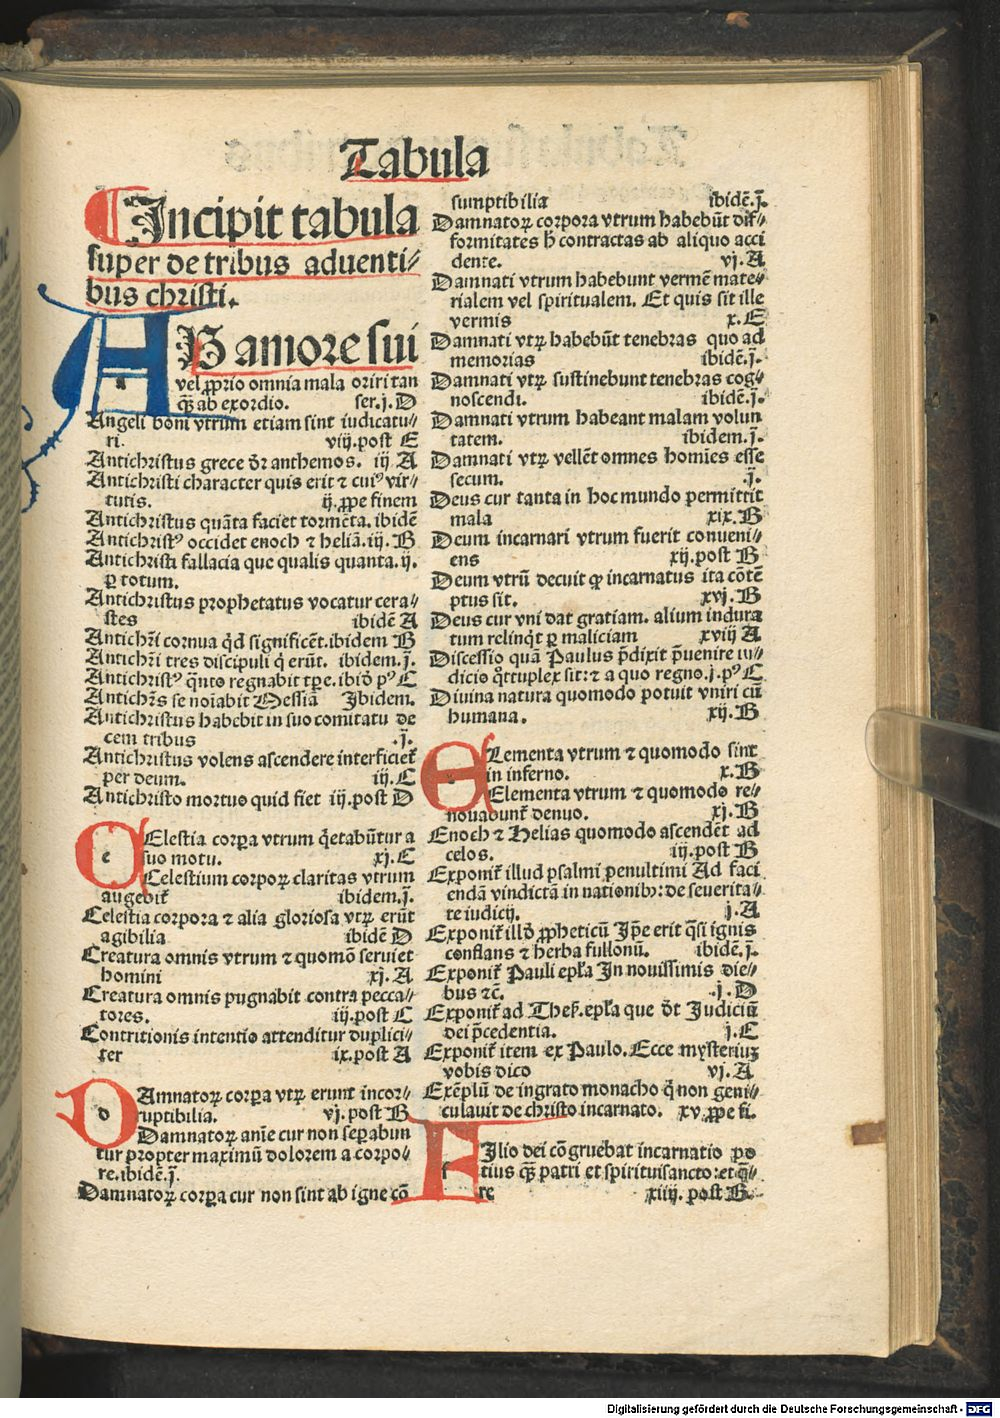 Tabula
Incipit tabula
super de tribus aduenti⸗
bus christi.
AB amore sui
vel ꝓprio omnia mala oriri tan
qȝ̄ ab exordio. ser.j.D
Angeli boni vtrum etiam sint iudicatu⸗
ri. viij.post E
Antichristus grece dr̄ anthemos. iij A
Antichristi character quis erit ⁊ cuiꝰ vir⸗
tutis. ij.ꝓpe finem
Antichristus quāta faciet tormēta. ibidē
Antichristꝰ occidet enoch ⁊ heliā.iij.B
Antichristi fallacia que qualis quanta.ij.
ꝑ totum.
Antichristus prophetatus vocatur cera⸗
stes ibidē A
Antichr̄i cornua qd̓ significēt.ibidem B
Antichr̄i tres discipuli q̇ erūt. ibidem.j̄.
Antichristꝰ qnto regnabit tꝑe.ibid̓ pꝰ C
Antichr̄s se noīabit Messiā Ibidem.
Antichristus habebit in suo comitatu de
cem tribus .j̄.
Antichristus volens ascendere interficiet᷑
per deum. iij.C
Antichristo mortuo quid fiet iij.post D
CElestia corꝑa vtrum q̇etabūtur a
suo motu. xj.C
Celestium corpoꝝ claritas vtrum
augebit᷑ ibidem.j̄.
Celestia corpora ⁊ alia gloriosa vtꝝ erūt
agibilia ibidē D
Creatura omnis vtrum ⁊ quomō seruiet
homini xj.A
Creatura omnis pugnabit contra pecca⸗
tores. iij.post C
Contritionis intentio attenditur duplici⸗
ter ix.post A
DAmnatoꝝ corꝑa vtꝝ erunt incor⸗
ruptibilia. vj.post B
Damnatoꝝ anīe cur non seꝑabun
tur propter maximū dolorem a corpo⸗
re.ibidē.j̄.
Damnatoꝝ corꝑa cur non sint ab igne cō
sumptibilia ibidē.j̄.
Damnatoꝝ corpora vtrum habebūt dif⸗
formitates hic contractas ab aliquo acci
dente. vj.A
Damnati vtrum habebunt vermē mate⸗
rialem vel spiritualem. Et quis sit ille
vermis x.E
Damnati vtꝝ habebūt tenebras quo ad
memorias ibidē.j̄.
Damnati vtꝝ sustinebunt tenebras cog⸗
noscendi. ibidē.j̄.
Damnati vtrum habeant malam volun
tatem. ibidem.j̄.
Damnati vtꝝ vellēt omnes homīes esse
secum. .j̄.
Deus cur tanta in hoc mundo permittit
mala xix.B
Deum incarnari vtrum fuerit conueni⸗
ens xij.post B
Deum vtrū decuit ꝙ incarnatus ita cōtē
ptus sit. xvj.B
Deus cur vni dat gratiam. alium indura
tum relinq̇t ꝑ maliciam xviij A
Discessio quā Paulus p̄dixit p̄uenire iu⸗
dicio q̊tuplex sit:⁊ a quo regno.j.pꝰ C
Diuina natura quomodo potuit vniri cū
humana. xij.B
ELementa vtrum ⁊ quomodo sint
in inferno. x.B
Elementa vtrum ⁊ quomodo re⸗
nouabunt᷑ denuo. xj.B
Enoch ⁊ Helias quomodo ascendēt ad
celos. iij.post B
Exponit᷑ illud psalmi penultimi Ad faci
endā vindictā in nationibꝫ:de seuerita⸗
te iudicij. j.A
Exponit᷑ illd̓ ꝓpheticū Ip̄e erit qȧsi ignis
conflans ⁊ herba fullonū. ibidē.j̄.
Exponit᷑ Pauli epl̓a In nouissimis die⸗
bus ⁊c̄. .j.D
Exponit᷑ ad Thes̓.epl̓a que dr̄t Judiciū
dei p̄cedentia. j.C
Exponit᷑ item ex Paulo.Ecce mysteriuꝫ
vobis dico vj.A
Exēplū de ingrato monacho q̇ non geni⸗
culauit de christo incarnato. xv.ꝓpe fi.
FIlio dei cōgruebat incarnatio po
tius qȝ̄ patri et spirituisancto:et qȧ⸗
re xiiij.post B.
Digitalisierung gefördert durch die Deutsche Forschungsgemeinschaft - DFG